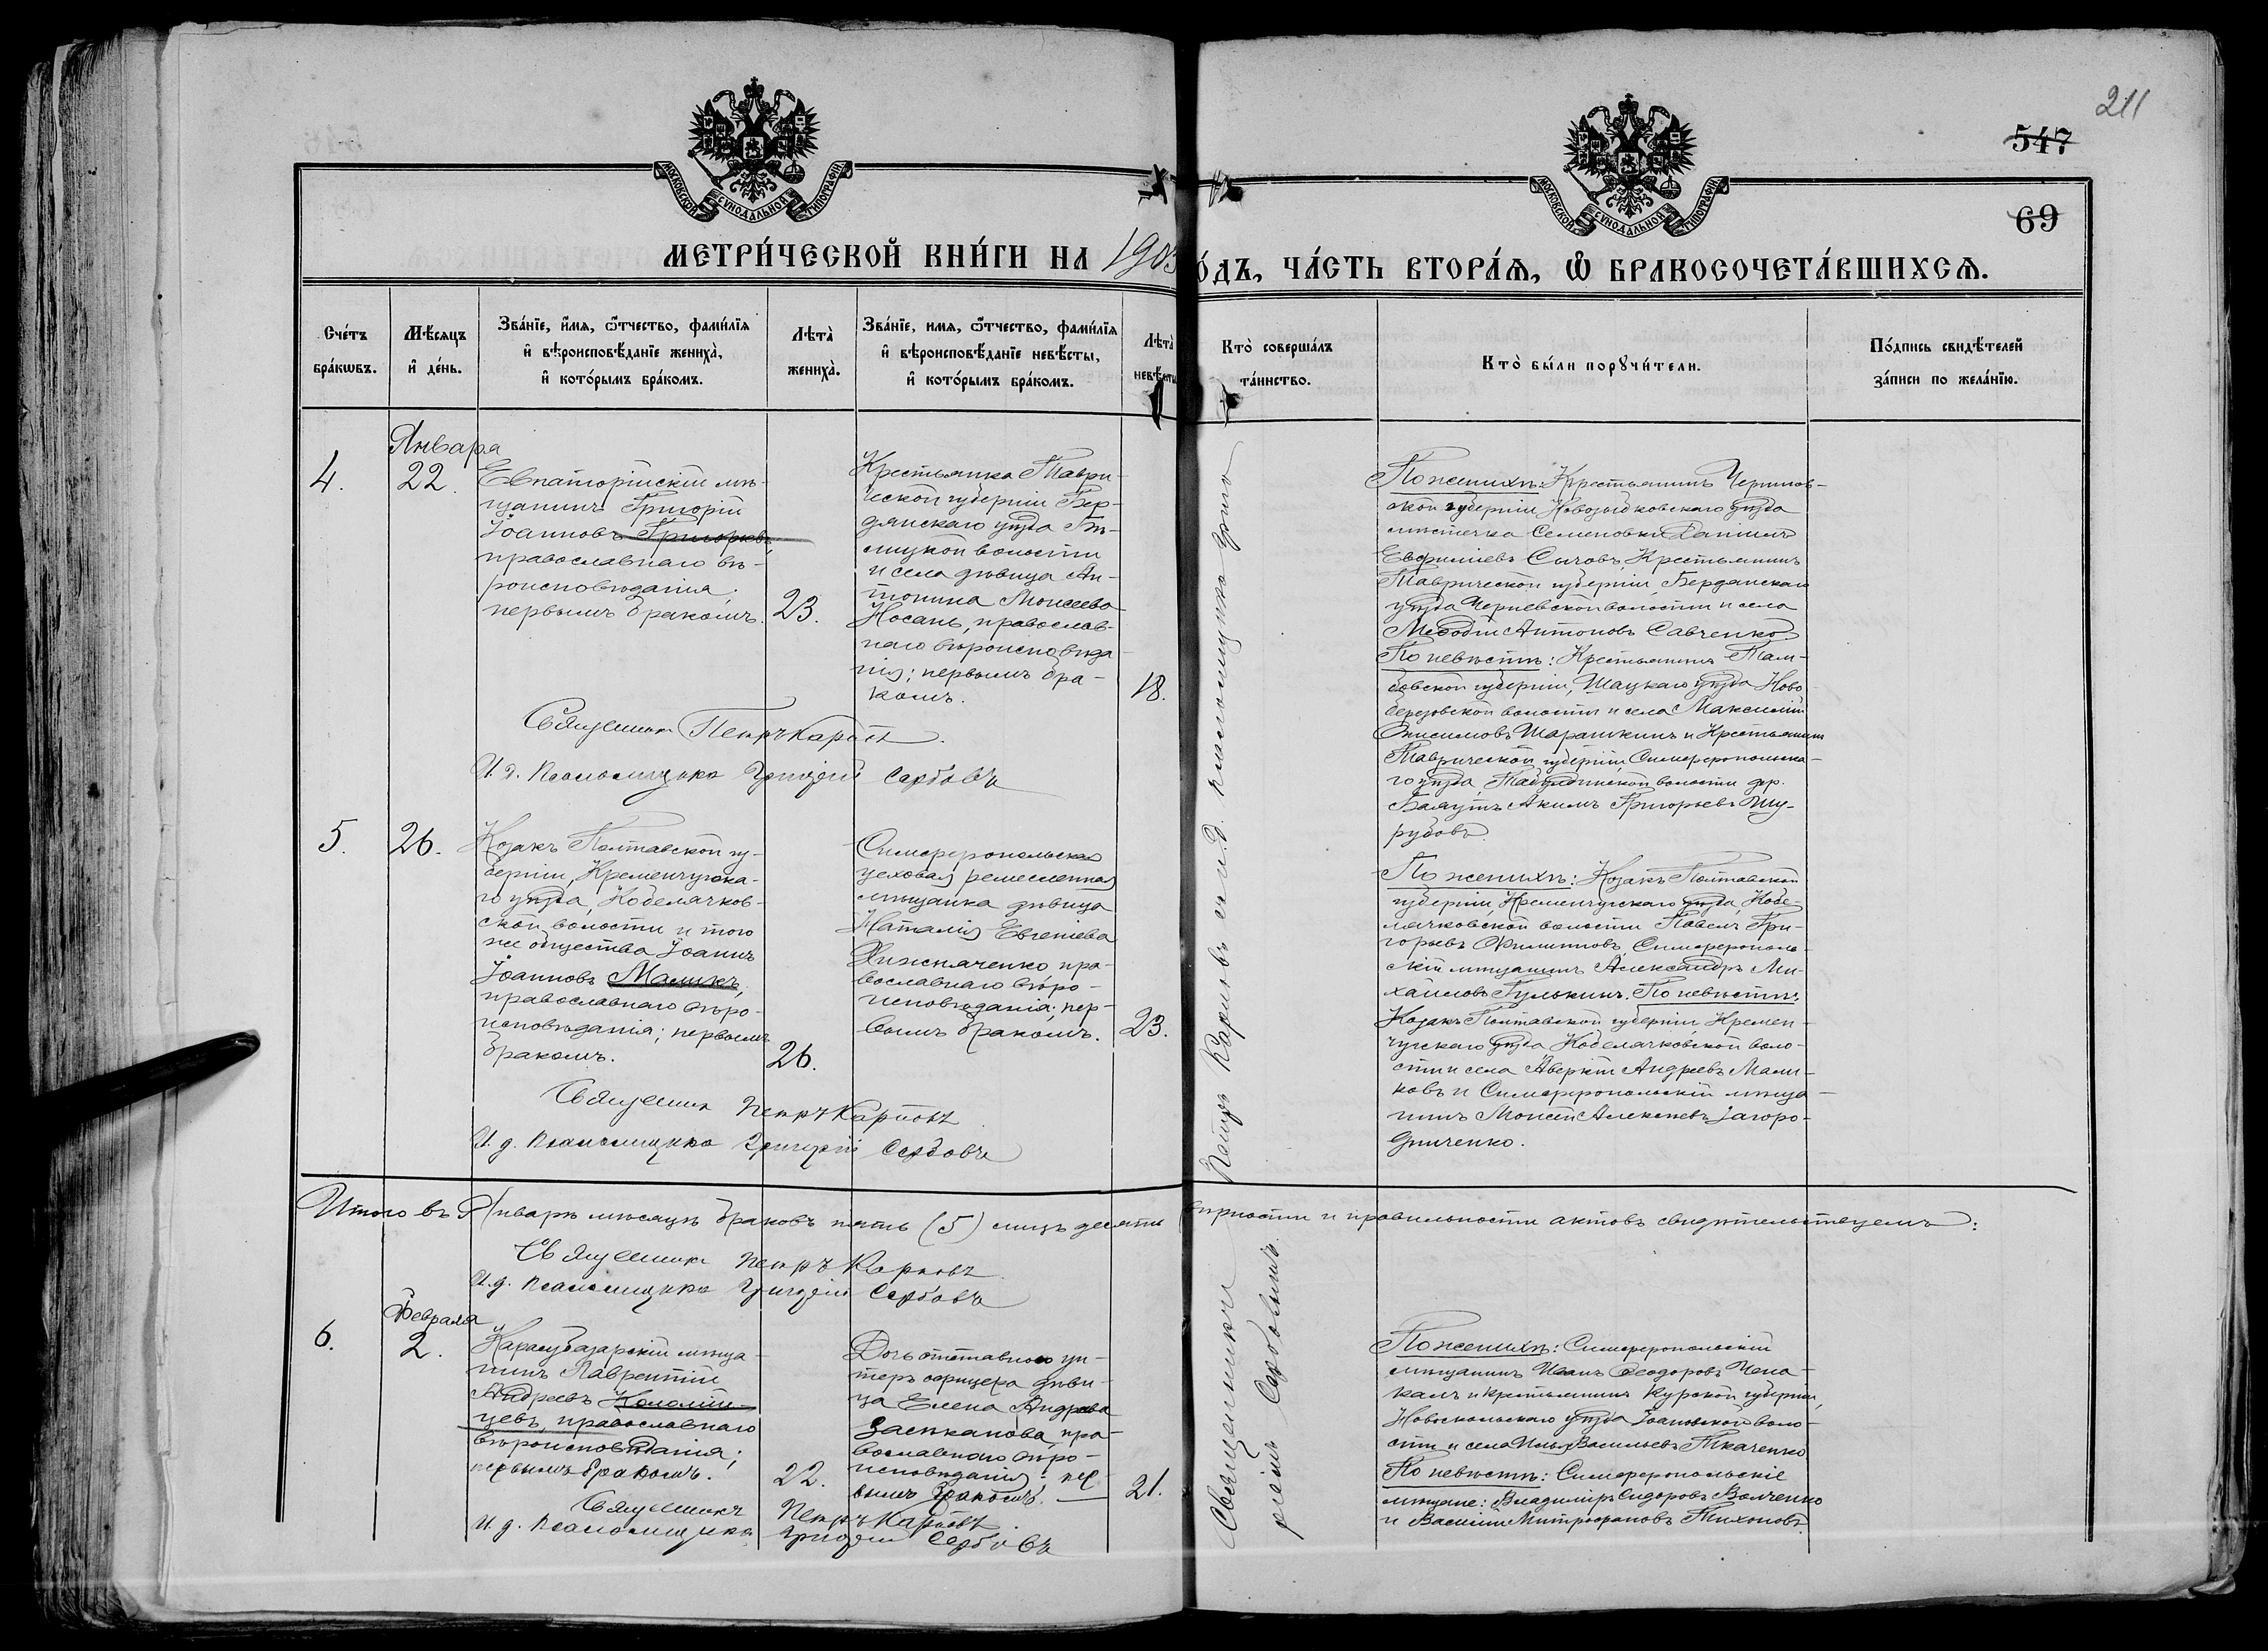 211
547
69
МОСКОВСКОЙ СѴНОДАЛЬНОЙ ТИПОГРАФІИ
МОСКОВСКОЙ СѴНОДАЛЬНОЙ ТИПОГРАФІИ
МЕТРИ́ЧЕСКОЙ КНИ́ГИ НА 1903 О́ДЪ, ЧА́СТЬ ВТОРА́Ѧ, Ѽ БРАКОСОЧЕТА́ВШИХСѦ.
Сче́тъ
бра́кѡвъ.
Мѣ́сяцъ
и҆ де́нь.
Зва́нїе, и҆́мѧ, ѻ҆́тчество, фами́лїѧ
и҆ вѣроисповѣ́данїе жениха̀,
и҆ кото́рымъ бра́комъ.
Лѣта̀
жениха̀.
Зва́нїе, имѧ, ѻ҆́тчество, фами́лїѧ
и҆ вѣроисповѣ́данїе невѣ́сты,
и҆ кото́рымъ бра́комъ.
Лѣта̀
невѣ́сты
Кто̀ соверша́лъ
та́инство.
Кто̀ бы́ли порꙋчи́тели.
По́дпись свидѣ́телей
за́писи по жела́нїю.
4.
Января
22.
Евпаторійскій мѣ-
щанинъ Григорій
Іоанновъ Григорьевъ,
православнаго вѣ-
роисповѣданія;
первымъ бракомъ.
23.
Крестьянка Таври-
ческой губерніи Бер-
дянскаго уѣзда
волости
и села дѣвица Ан-
тонина Моисеева
Носань, православ-
наго вѣроисповѣда
нія; первымъ бра-
комъ.
18.
Священникъ Петръ Карповъ
И. д. Псаломщика Григорій Сербовъ
По женихѣ: Крестьянинъ Чернигов-
ской губерніи Новозыбковскаго уѣзда
мѣстечка Семеновки Даніилъ
Евфиміевъ Сычовъ, Крестьянинъ
Таврической губерніи, Бердянскаго
уѣзда Черневской волости и села
Меѳодій Антоновъ Савченко
По невѣстѣ: Крестьянинъ Там-
бовской губерніи, Шацкаго уѣзда Ново
березовской волости и села Максимъ
Онисимовъ Шарашкинъ и Крестьянинъ
Таврической губерніи, Симферопольска-
го уѣзда, Табулдинской волости дер.
Баяутъ Акимъ Григорьевъ Шу-
рубовъ
5.
26.
Козакъ Полтавской гу-
берніи, Кременчугска-
го уѣзда, Кобелячков-
ской волости и того
же общества Іоаннъ
Іоанновъ Маликъ,
православнаго вѣро-
исповѣданія; первымъ
бракомъ.
26.
Симферопольская
цеховая ремесленная
мѣщанка дѣвица
Наталія Евгеніева
Хижняченко пра-
вославнаго вѣро-
исповѣданія; пер-
вымъ бракомъ.
23.
Священникъ Петръ Карповъ
И. д. Псаломщика Григорій Сербовъ
По женихѣ: Козакъ Полтавской
губерніи, Кременчугскаго уѣзда, Кобе-
лячковской волости Павелъ Гри-
горьевъ Филипповъ, Симферополь-
скій мѣщанинъ Александръ Ми-
хаиловъ Гулькинъ. По невѣстѣ:
Козакъ Полтавской губерніи, Кремен-
чугскаго уѣзда Кобелячковской воло-
сти и села Аверкій Андреевъ Мали-
ковъ и Симферопольскій мѣща-
нинъ Моисей Алексѣевъ Загоро-
дниченко.
Итого въ Январѣ мѣсяцѣ браковъ пять (5) лицъ десять вѣрности и правильности актовъ свидѣтельствуемъ:
Священникъ Петръ Карповъ
И. д. Псаломщика Григорій Сербовъ
6.
Февраля
2.
Карасубазарскій мѣща-
нинъ Лаврентій
Андреевъ Коломій-
цевъ, православнаго
вѣроисповѣданія;
первымъ бракомъ.
22.
Дочь отставного ун-
теръ офицера дѣви-
ца Елена Андреева
Заспканова, пра-
вославнаго вѣро-
исповѣданія; пер
вымъ бракомъ.
21.
Священникъ Петръ Карповъ.
И. д. Псаломщика Григорій Сербовъ
По женихѣ: Симферопольскій
мѣщанинъ Иванъ Ѳеодоровъ Чепа-
калъ и крестьянинъ Курской губерніи,
Новоскольскаго уѣзда воло-
сти и села Илья Васильевъ Ткаченко
По невѣстѣ: Симферопольскіе
мѣщане: Владиміръ Сидоровъ Волченко
и Василій Митрофановъ Тихоновъ
Священникъ Петръ Карповъ съ и. д. псаломщика Григо
ріемъ Сербовымъ.